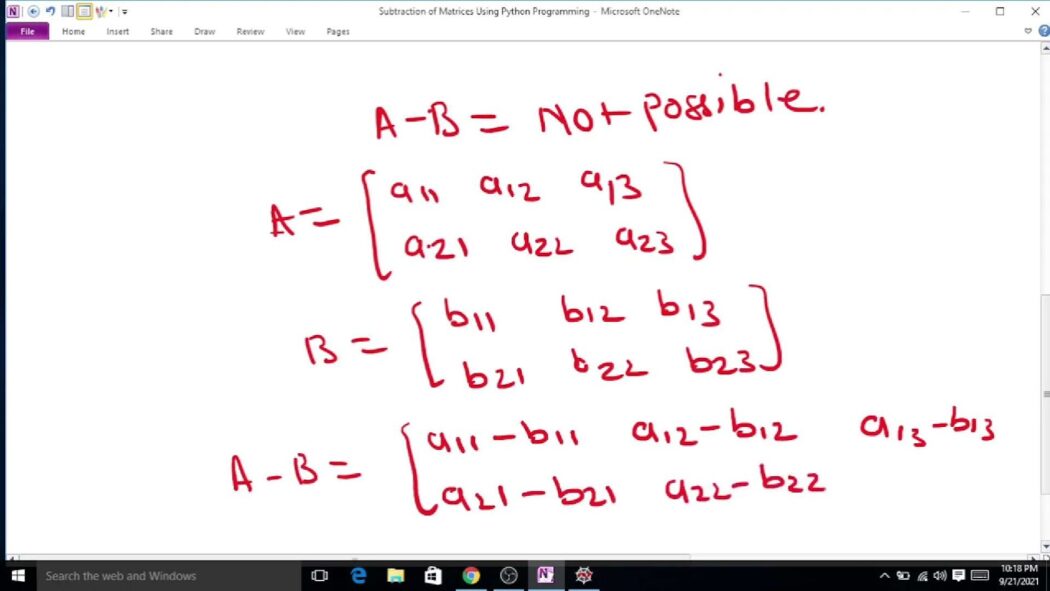 Subtraction of Matrices Using Python Programming - Microsoft OneNote
File Home Insert Share Draw Review View Pages
A-B = Not possible.
A = [ a11 a12 a13
a21 a22 a23 ]
B = [ b11 b12 b13
b21 b22 b23 ]
A-B = [ a11-b11 a12-b12 a13-b13
a21-b21 a22-b22
Search the web and Windows
10:18 PM
9/21/2021